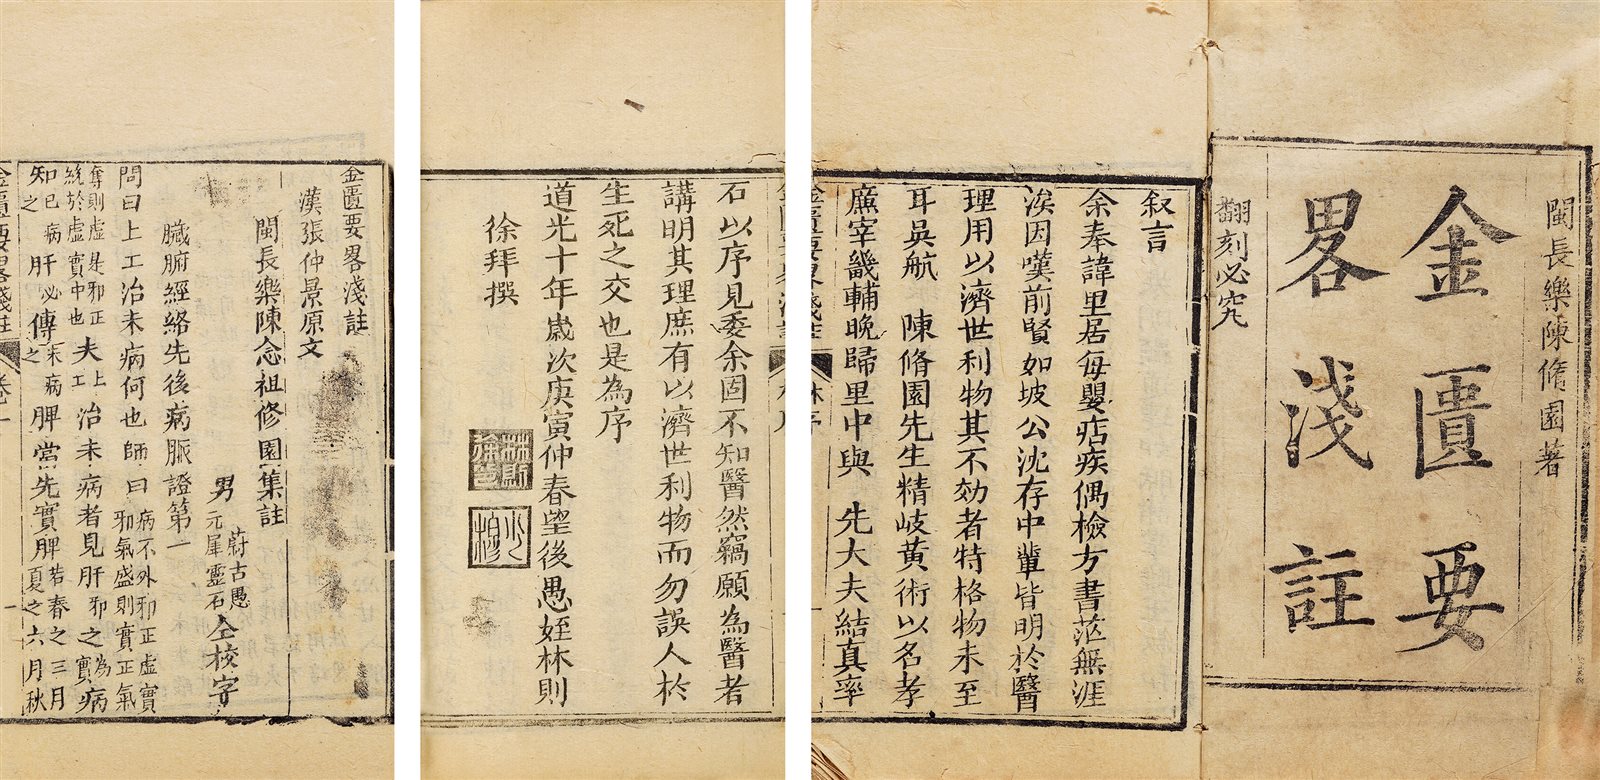 閩長樂陳脩園著
金匱要
畧淺註
翻刻必究
叙言
余奉諱里居每嬰痁疾偶檢方書茫無涯
涘因嘆前賢如坡公沈存中輩皆明於醫
理用以濟世利物其不効者特格物未至
耳吳航 陳脩園先生精岐黃術以名孝
廉宰畿輔晚歸里中與 先大夫結真率
金匱要畧淺註 林序
金匱要畧淺註 林序
石以序見委余固不知醫然竊願為醫者
講明其理庶有以濟世利物而勿誤人於
生死之交也是為序
道光十年歲次庚寅仲春望後愚姪林則
徐拜撰
林則徐印
少穆
金匱要畧淺註
漢張仲景原文
閩長樂陳念祖修園集註
男 元犀靈石 蔚古愚 仝校字
臟腑經絡先後病脈證第一
問曰上工治未病何也師曰病不外邪正虛實邪氣盛則實正氣
奪則虛是邪正統於虛實中也夫上工治未病者見肝邪之實為病
知之已病肝必傳之未病脾當先實脾若春之三月夏之六月秋
金匱要畧淺註 卷一 一